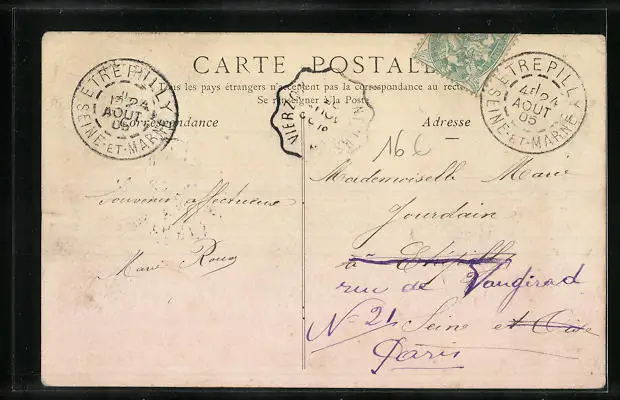 CARTE POSTALE
Tous les pays étrangers n'acceptent pas la correspondance au recto
Se renseigner à la Poste
Correspondance
Adresse
ETREPILLY
AOUT
05
SEINE-ET-MARNE
VIERZON
ETREPILLY
AOUT
05
SEINE-ET-MARNE
16€
Souvenir affectueux
Marie
Mademoiselle Marie
Jourdain
à
rue de Vaugirad
N° 21 Seine et Oise
Paris